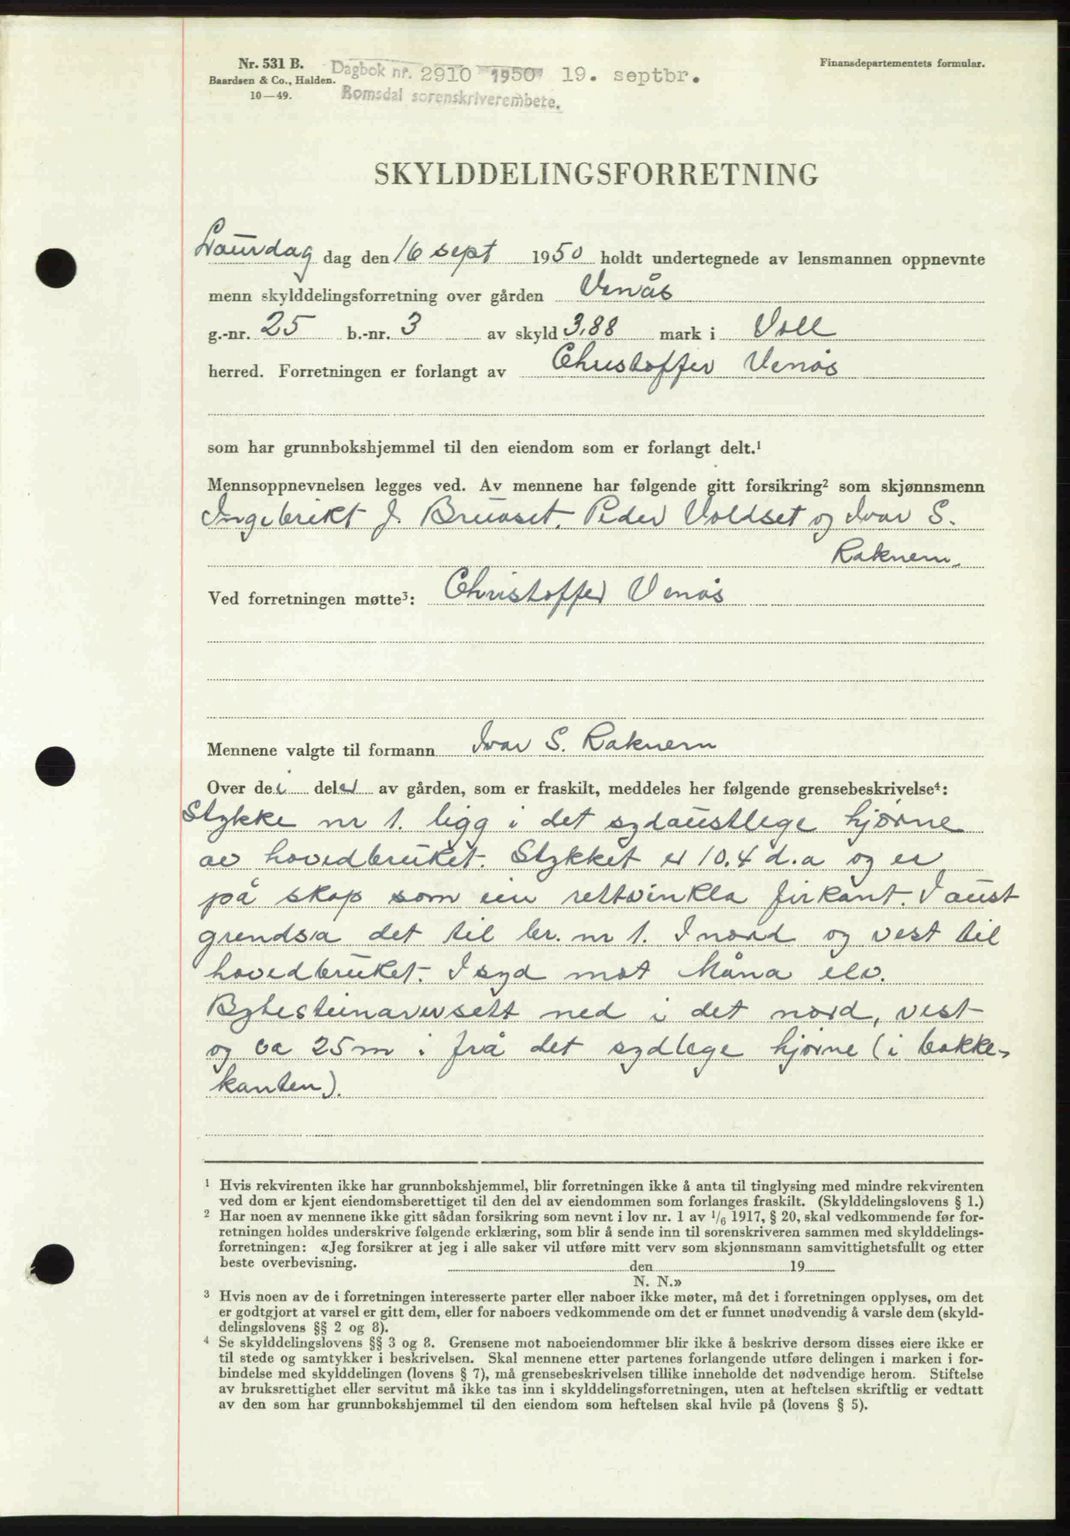 Nr. 531 B.
Baardsen & Co., Halden.
10—49.
Dagbok nr. 2910 1950 19. septbr.
Romsdal sorenskriverembete.
Finansdepartementets formular.
SKYLDDELINGSFORRETNING
Laurdag dag den 16 sept 1950 holdt undertegnede av lensmannen oppnevnte
menn skylddelingsforretning over gården Venås
g.-nr. 25 b.-nr. 3 av skyld 3,88 mark i Voll
herred. Forretningen er forlangt av Christoffer Venås
som har grunnbokshjemmel til den eiendom som er forlangt delt.¹
Mennsoppnevnelsen legges ved. Av mennene har følgende gitt forsikring² som skjønnsmenn
Ingebrikt J. Bruaset, Peder Voldset og Ivar S.
Raknem.
Ved forretningen møtte³: Christoffer Venås
Mennene valgte til formann Ivar S. Raknem
Over dei deler av gården, som er fraskilt, meddeles her følgende grensebeskrivelse⁴:
Stykke nr 1. ligg i det sydaustlege hjørne
av hovedbruket. Stykket er 10.4 d.a og er
på skap som ein rettvinkla firkant. I aust
grendsa det til br. nr 1. I nord og vest til
hovedbruket. I syd mot Måna elv.
Bytesteinar ersett ned i det nord, vest
og ca 25 m. frå det sydlege hjørne (i bakke-
kanten).
¹ Hvis rekvirenten ikke har grunnbokshjemmel, blir forretningen ikke å anta til tinglysing med mindre rekvirenten
ved dom er kjent eiendomsberettiget til den del av eiendommen som forlanges fraskilt. (Skylddelingslovens § 1.)
² Har noen av mennene ikke gitt sådan forsikring som nevnt i lov nr. 1 av ¹/₆ 1917, § 20, skal vedkommende før for-
retningen holdes underskrive følgende erklæring, som blir å sende inn til sorenskriveren sammen med skylddelings-
forretningen: «Jeg forsikrer at jeg i alle saker vil utføre mitt verv som skjønnsmann samvittighetsfullt og etter
beste overbevisning. den 19
N. N.»
³ Hvis noen av de i forretningen interesserte parter eller naboer ikke møter, må det i forretningen opplyses, om det
er godtgjort at varsel er gitt dem, eller for naboers vedkommende om det er funnet unødvendig å varsle dem (skyld-
delingslovens §§ 2 og 8).
⁴ Se skylddelingslovens §§ 3 og 8. Grensene mot naboeiendommer blir ikke å beskrive dersom disses eiere ikke er
til stede og samtykker i beskrivelsen. Skal mennene etter partenes forlangende utføre delingen i marken i for-
bindelse med skylddelingen (lovens § 7), må grensebeskrivelsen tillike inneholde det nødvendige herom. Stiftelse
av bruksrettighet eller servitut må ikke tas inn i skylddelingsforretningen, uten at heftelsen skriftlig er vedtatt
av den som har grunnbokshjemmel til den eiendom som heftelsen skal hvile på (lovens § 5).